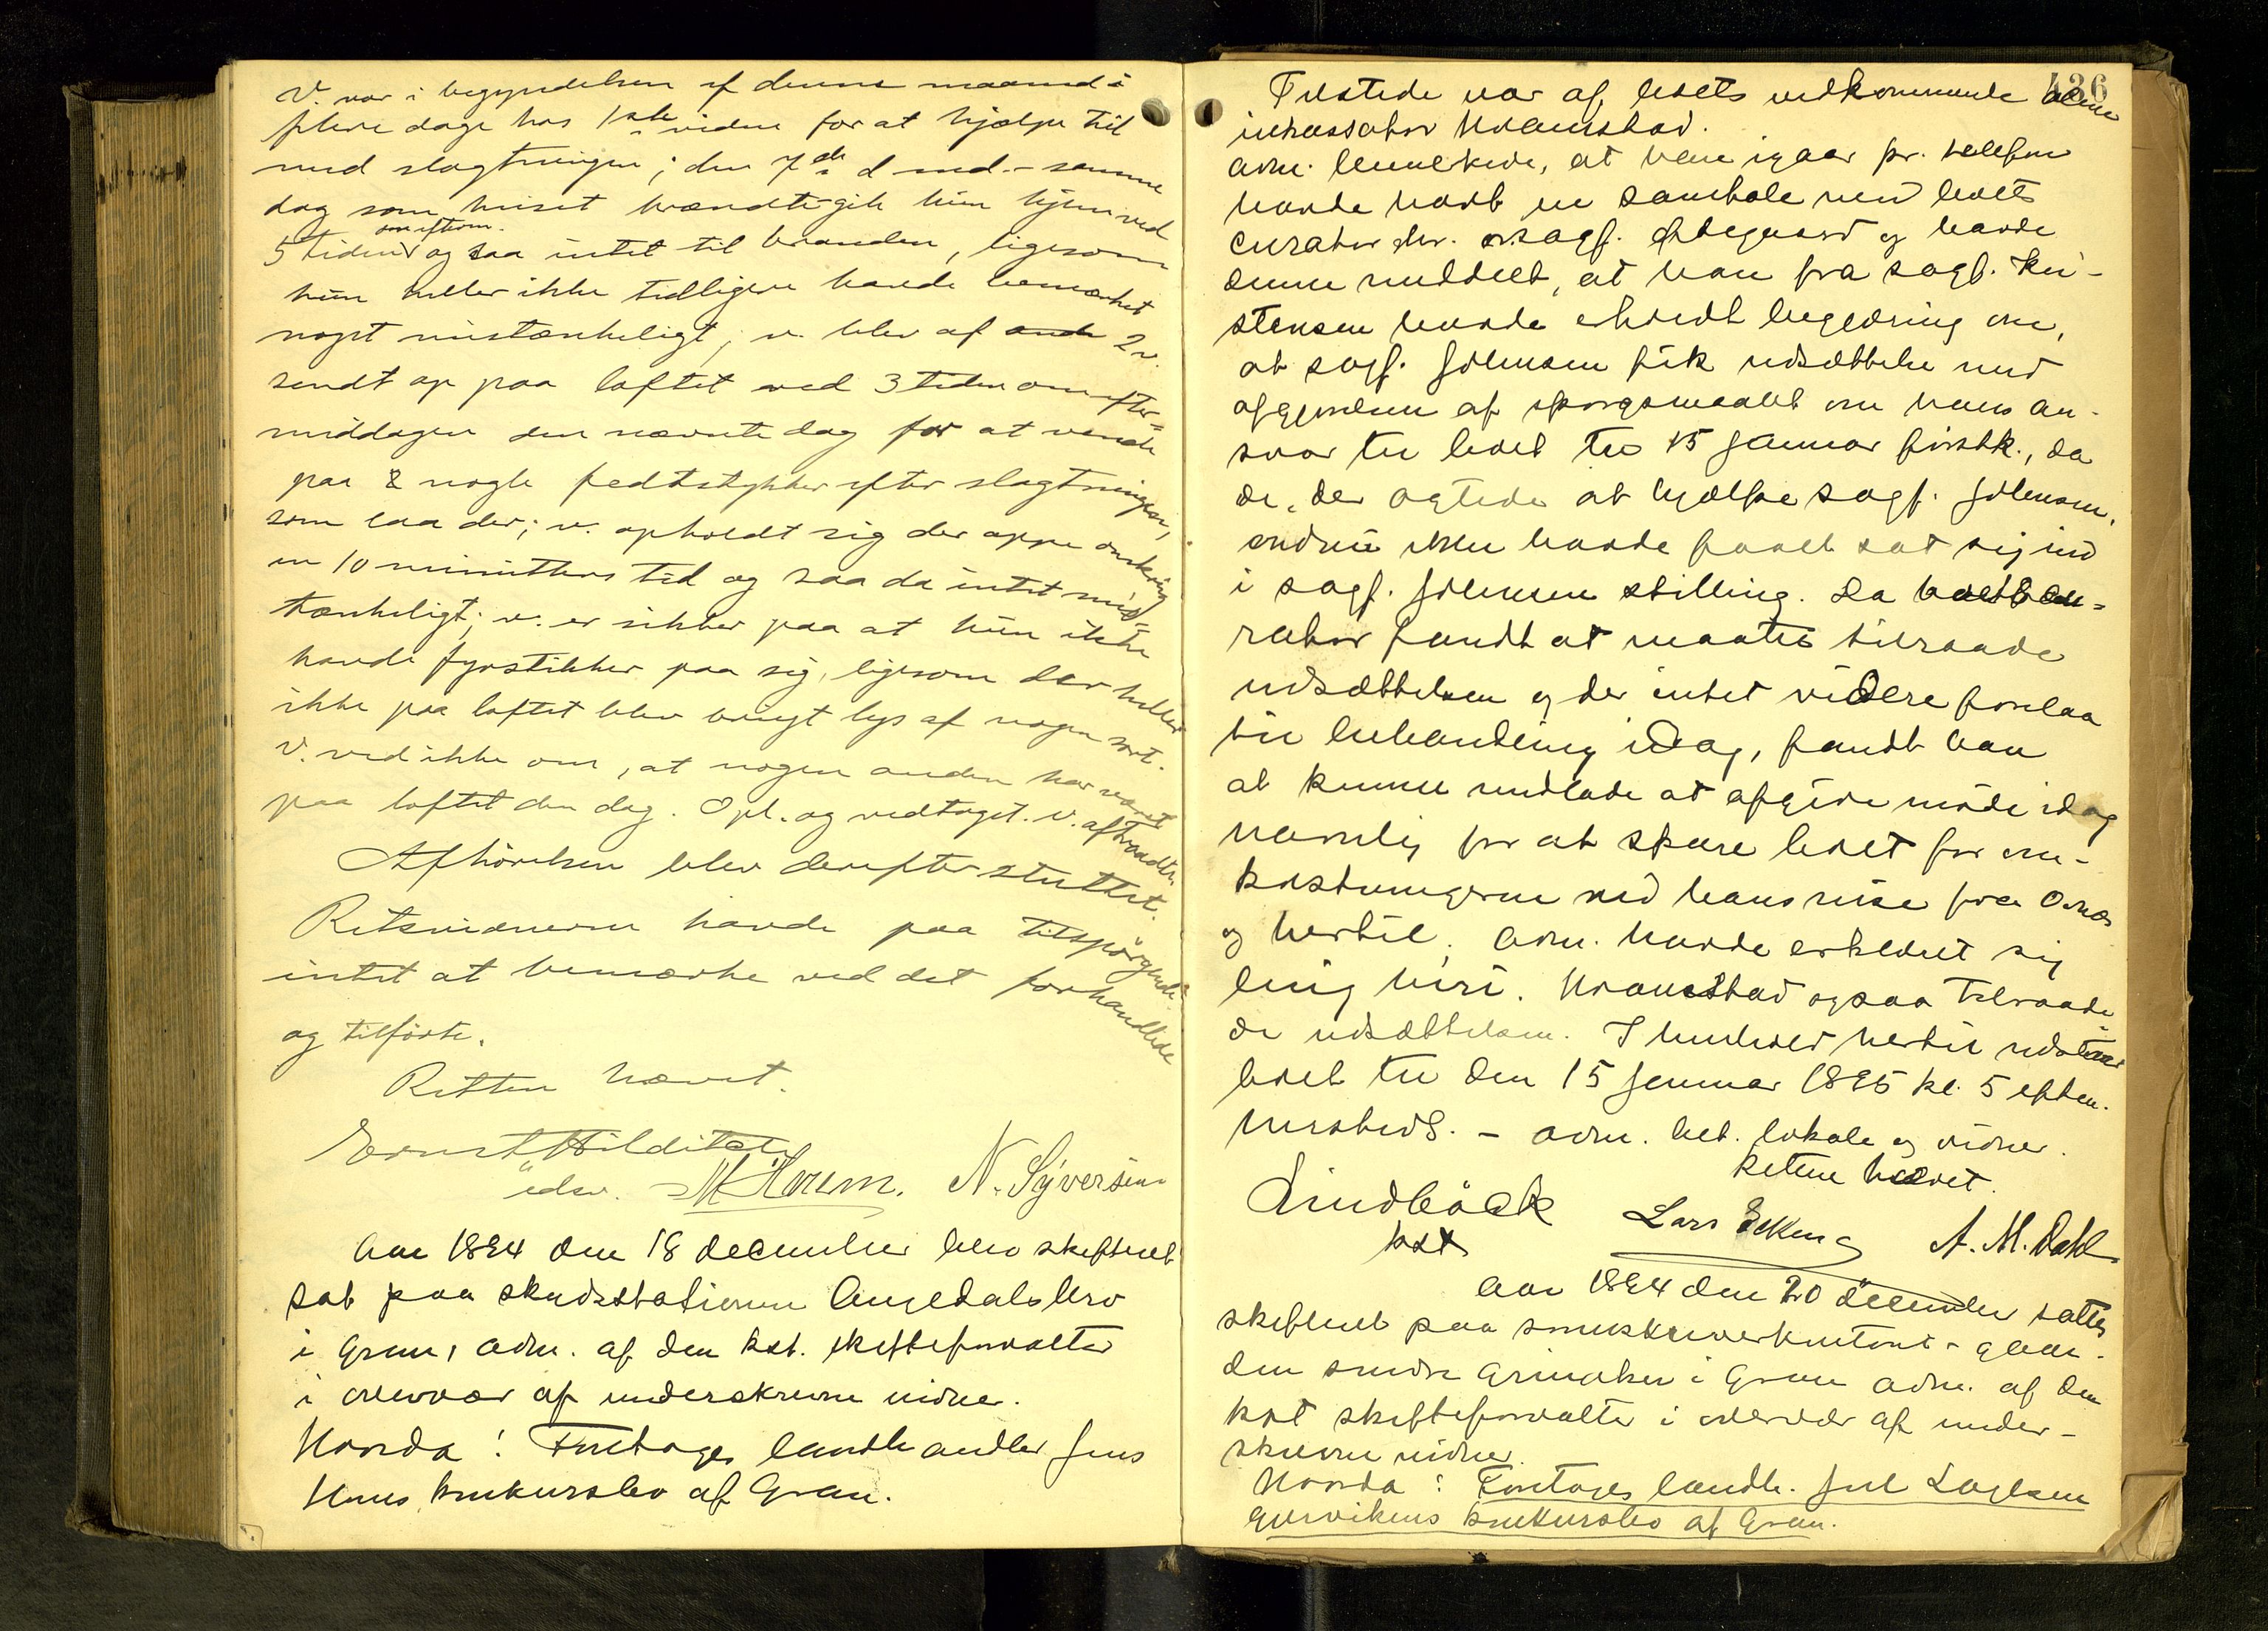 V. var i begyndelsen af denne maaned i
flere dage hos 1ste vidne for at hjælpe til
med slagtningen; den 7de d md. - samme
dag som huset brændte gik hun hjem ved
5 tiden om efterm. og saa intet til branden, ligesom
hun heller ikke tidligere havde bemærket
noget mistænkeligt; v. blev af 2 v.
sendt op paa loftet ved 3 tiden om efter=
middagen den nævnte dag for at vende
paa nogle fedtstykker efter slagtningen,
som laa der; v. opholdt sig der oppe omkring
en 10 minutters tid og saa da intet mis=
tænkeligt; v. er sikker paa at hun ikke
havde fyrstikker paa sig, ligesom der heller
ikke paa loftet blev brugt lys af nogen sort.
V. ved ikke om, at nogen anden har været
paa loftet den dag. Opl. og vedtaget. V. aftraadte.
Afhörelsen blev derefter sluttet.
Retsvidnerne havde paa tilspørgende
intet at bemærke ved det forhandlede
og tilførte.
Retten hævet.
Ernst Hilditch
edsv. M Horum. N. Syversen
Aar 1894 den 18 december blev skifteret
sat paa skydsstationen Augedalsbro
i Gran, adm. af den kst. skifteforvalter
i overvær af underskrevne vidner.
Hvorda: Foretages landhandler Jens
Hans konkursbo af Gran.
436
Tilstede var af boets vedkommende alene
inkassator Hvamstad.
adm. bemerkede, at han igaar pr. telefon
havde havt en samtale med boets
curator hr. o.sagf. Ødegaard og havde
denne meddelt, at han fra sagf. Kri-
stensen havde erholdt begjæring om,
at sagf. Johnsen fik udsættelse med
afgjørelsen af spørgsmaalet om hans an-
svar til boet til 15 januar förstk., da
de, der agtede at hjælpe sagf. Johnsen,
endnu ikke havde faaet sat sig ind
i sagf. Johnsens stilling. Da boets cu=
rator fandt at maatte tilraade
udsættelsen og der intet videre forelaa
til behandling idag, fandt han
at kunne undlade at afgive møde idag
navnlig for at spare boet for om-
kostningerne ved hans reise fra Odnæs
og hertil; adm. havde erklæret sig
enig heri. Hvamstad ogsaa tilraade-
de udsættelsen. I henhold hertil udstaar
boet til den 15 januar 1895 kl. 5 efterm.
hersteds. - adm. bet. lokale og vidner.
Retten hævet.
Lindbäck Lars Egge A. M. Dahl
kst
Aar 1894 den 20 december sattes
skifteret paa sorenskriverkontoret - gaar-
den søndre Grinaker i Gran adm. af den
kst skifteforvalter i overvær af under-
skrevne vidner.
Hvorda: Foretages landh. Joh Laglsen
Gjervikens konkursbo af Gran.